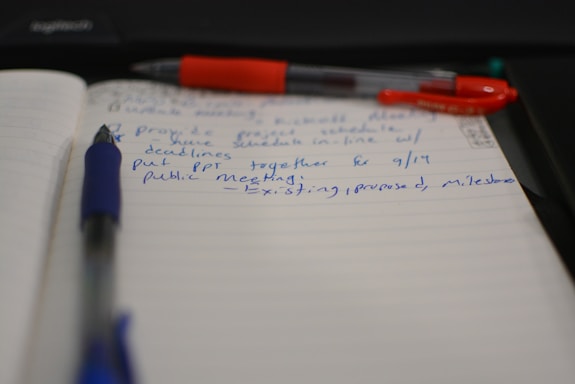 logitech
update meeting
Kickoff Meeting
provide project schedule
share schedule in-line w/
deadlines
put PPT together for 9/19
public meeting.
- Existing, proposed, milestone